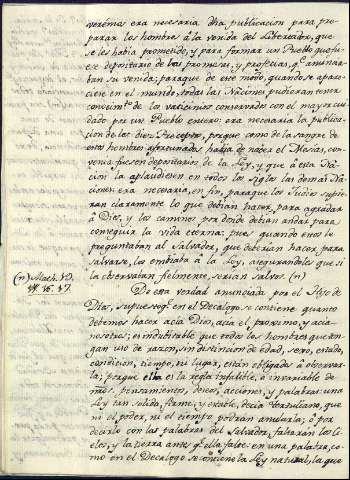 veremos era necesaria dha publicacion para pre-
parar los hombres á la venida del Libertador, que
se les habia prometido, y para formar un Pueblo que fu-
ese depositario de las promesas, y profecias, qe. anunciar-
ban su venida; para que de este modo, quando se apare-
ciese en el mundo, todas las Naciones pudieran tener
conocimto. de los vaticinios conservados con el mayor cui-
dado por un Pueblo entero: era necesaria la publica-
cion de los diez Preceptos, porque como de la sangre de
estos hombres afortunados habia de nacer el Mesias, con-
venia fuesen depositarios de la Ley, y que á esta Na-
cion la aplaudiesen en todos los siglos las demas Na-
ciones: era necesaria, en fin, para que los Judios supie-
ran claramente lo que debian hacer para agradar
á Dios, y los caminos por donde debian andar para
conseguir la vida eterna; pues quando estos le
preguntaban al Salvador, que deberian hacer para
salvarse, los embiaba á la Ley, asegurandoles que si
la observaban fielmente, serian salvos. (n)
(n) Math. 19.
16. 17.
De esta verdad anunciada por el Hijo de
Dios, supuesto qe. en el Decalogo se contiene quanto
debemos hacer acia Dios, acia el proximo, y acia
nosotros; es indubitable que todos los hombres que ten-
gan uso de razon, sin distincion de edad, sexo, estado,
condicion, tiempo, ni lugar, están obligados á observar-
la; porque ella es la regla infalible, é invariable de
ntros. pensamientos, deseos, acciones, y palabras: una
Ley tan solida, firme, y estable, decia Tertuliano, que
ni el poder, ni el tiempo podran anularla; ó por
decirlo con las palabras del Salvador, faltarán los Ci-
elos, y la tierra antes qe. ella falte: en una palabra, co-
mo en el Decalogo se contiene la Ley natural, la que